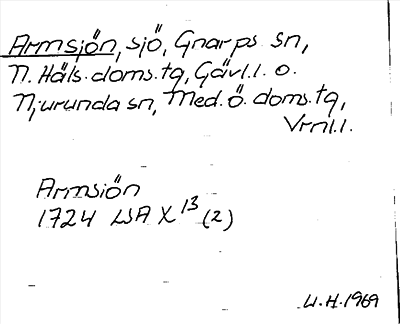 Armsjön, sjö, Gnarps sn,
N. Häls. doms. tg, Gävl. l. o.
Njurunda sn, Med. ö. doms. tg,
Vrnl. l.
Armsiön
1724 LSA X 13 (2)
U. H. 1969